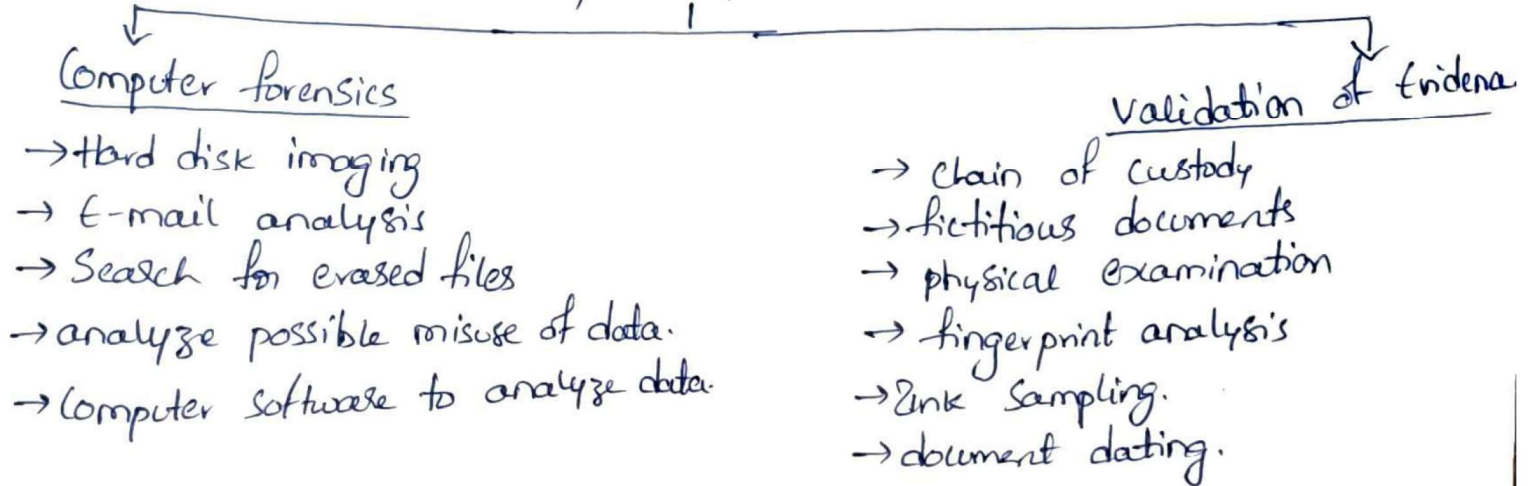 Computer forensics
→ Hard disk imaging
→ E-mail analysis
→ Search for erased files
→ analyze possible misuse of data.
→ Computer software to analyze data.
Validation of Evidence
→ chain of custody
→ fictitious documents
→ physical examination
→ fingerprint analysis
→ Ink Sampling.
→ document dating.